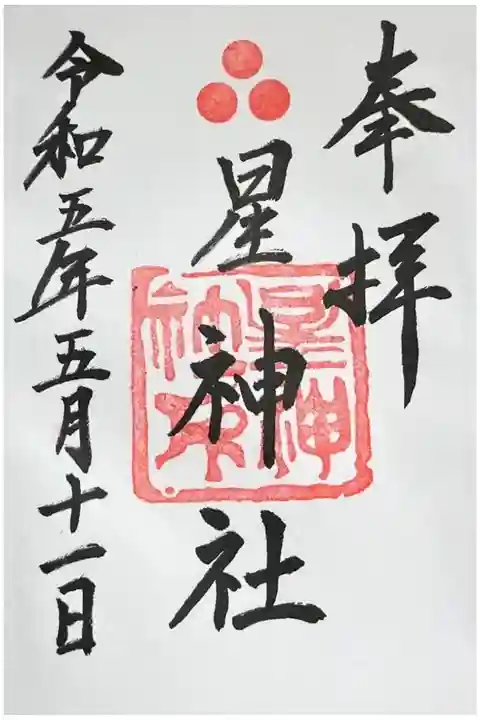 奉拝
星神社
令和五年五月十一日